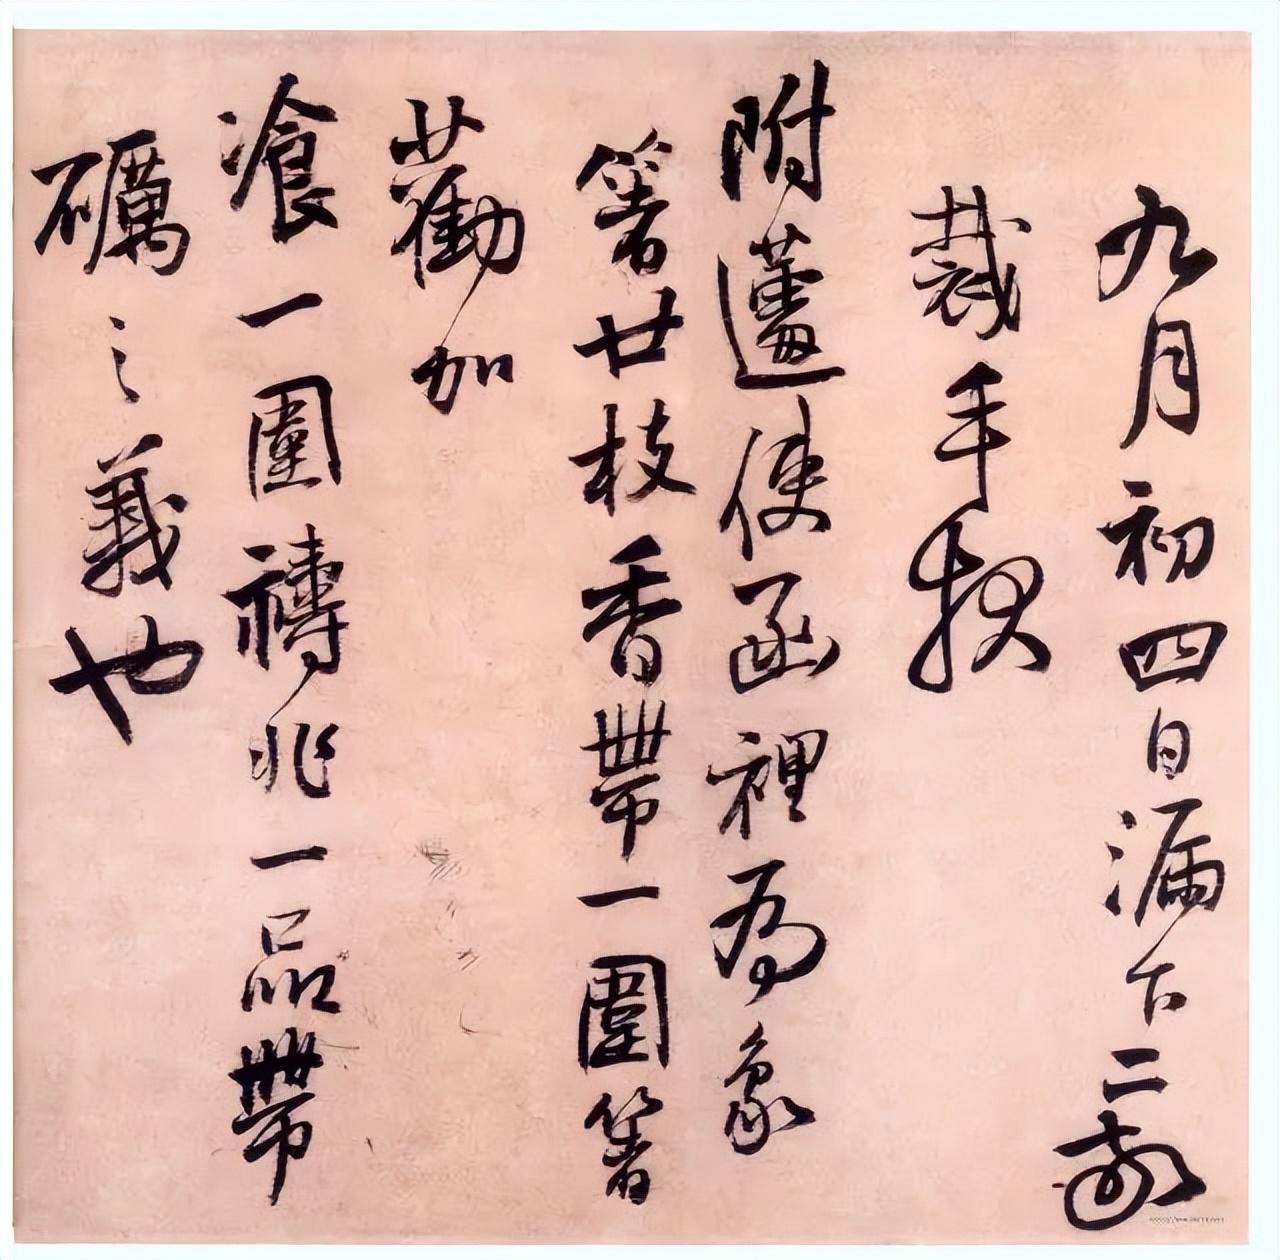 九月初四日漏下二
裁手
附使函裡為象
箸廿枝香帶一圍箸
廿勸加
飡一圍禱兆一品帶
礪之義也